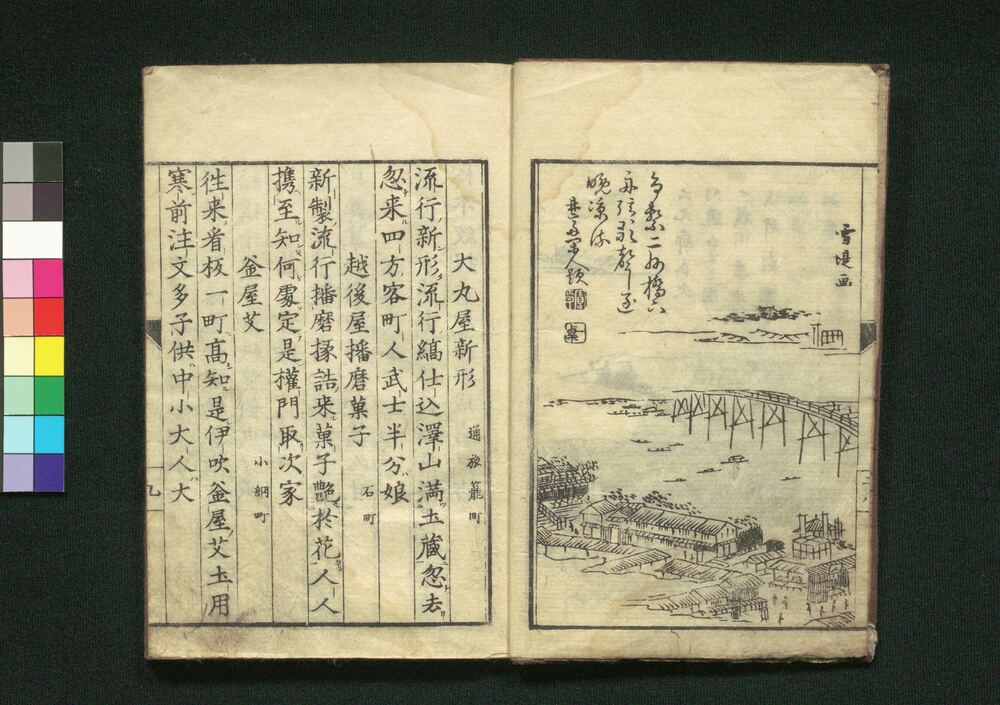 雪堤画
晩凉
大丸屋新形 通旅籠町
流行新形流行縞仕込澤山満土蔵忽去
忽来四方客町人武士半分娘
越後屋播磨菓子 石町
新製流行播磨掾詰来菓子艶於花人人
携至知何處定是權門取次家
釜屋艾 小網町
往来看板一町高知是伊吹釜屋艾土用
寒前注文多子供中小大人大
九